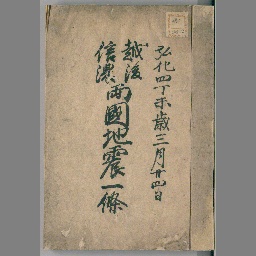 弘化四丁未歳三月廿四日
越後
信濃
両國地震一條